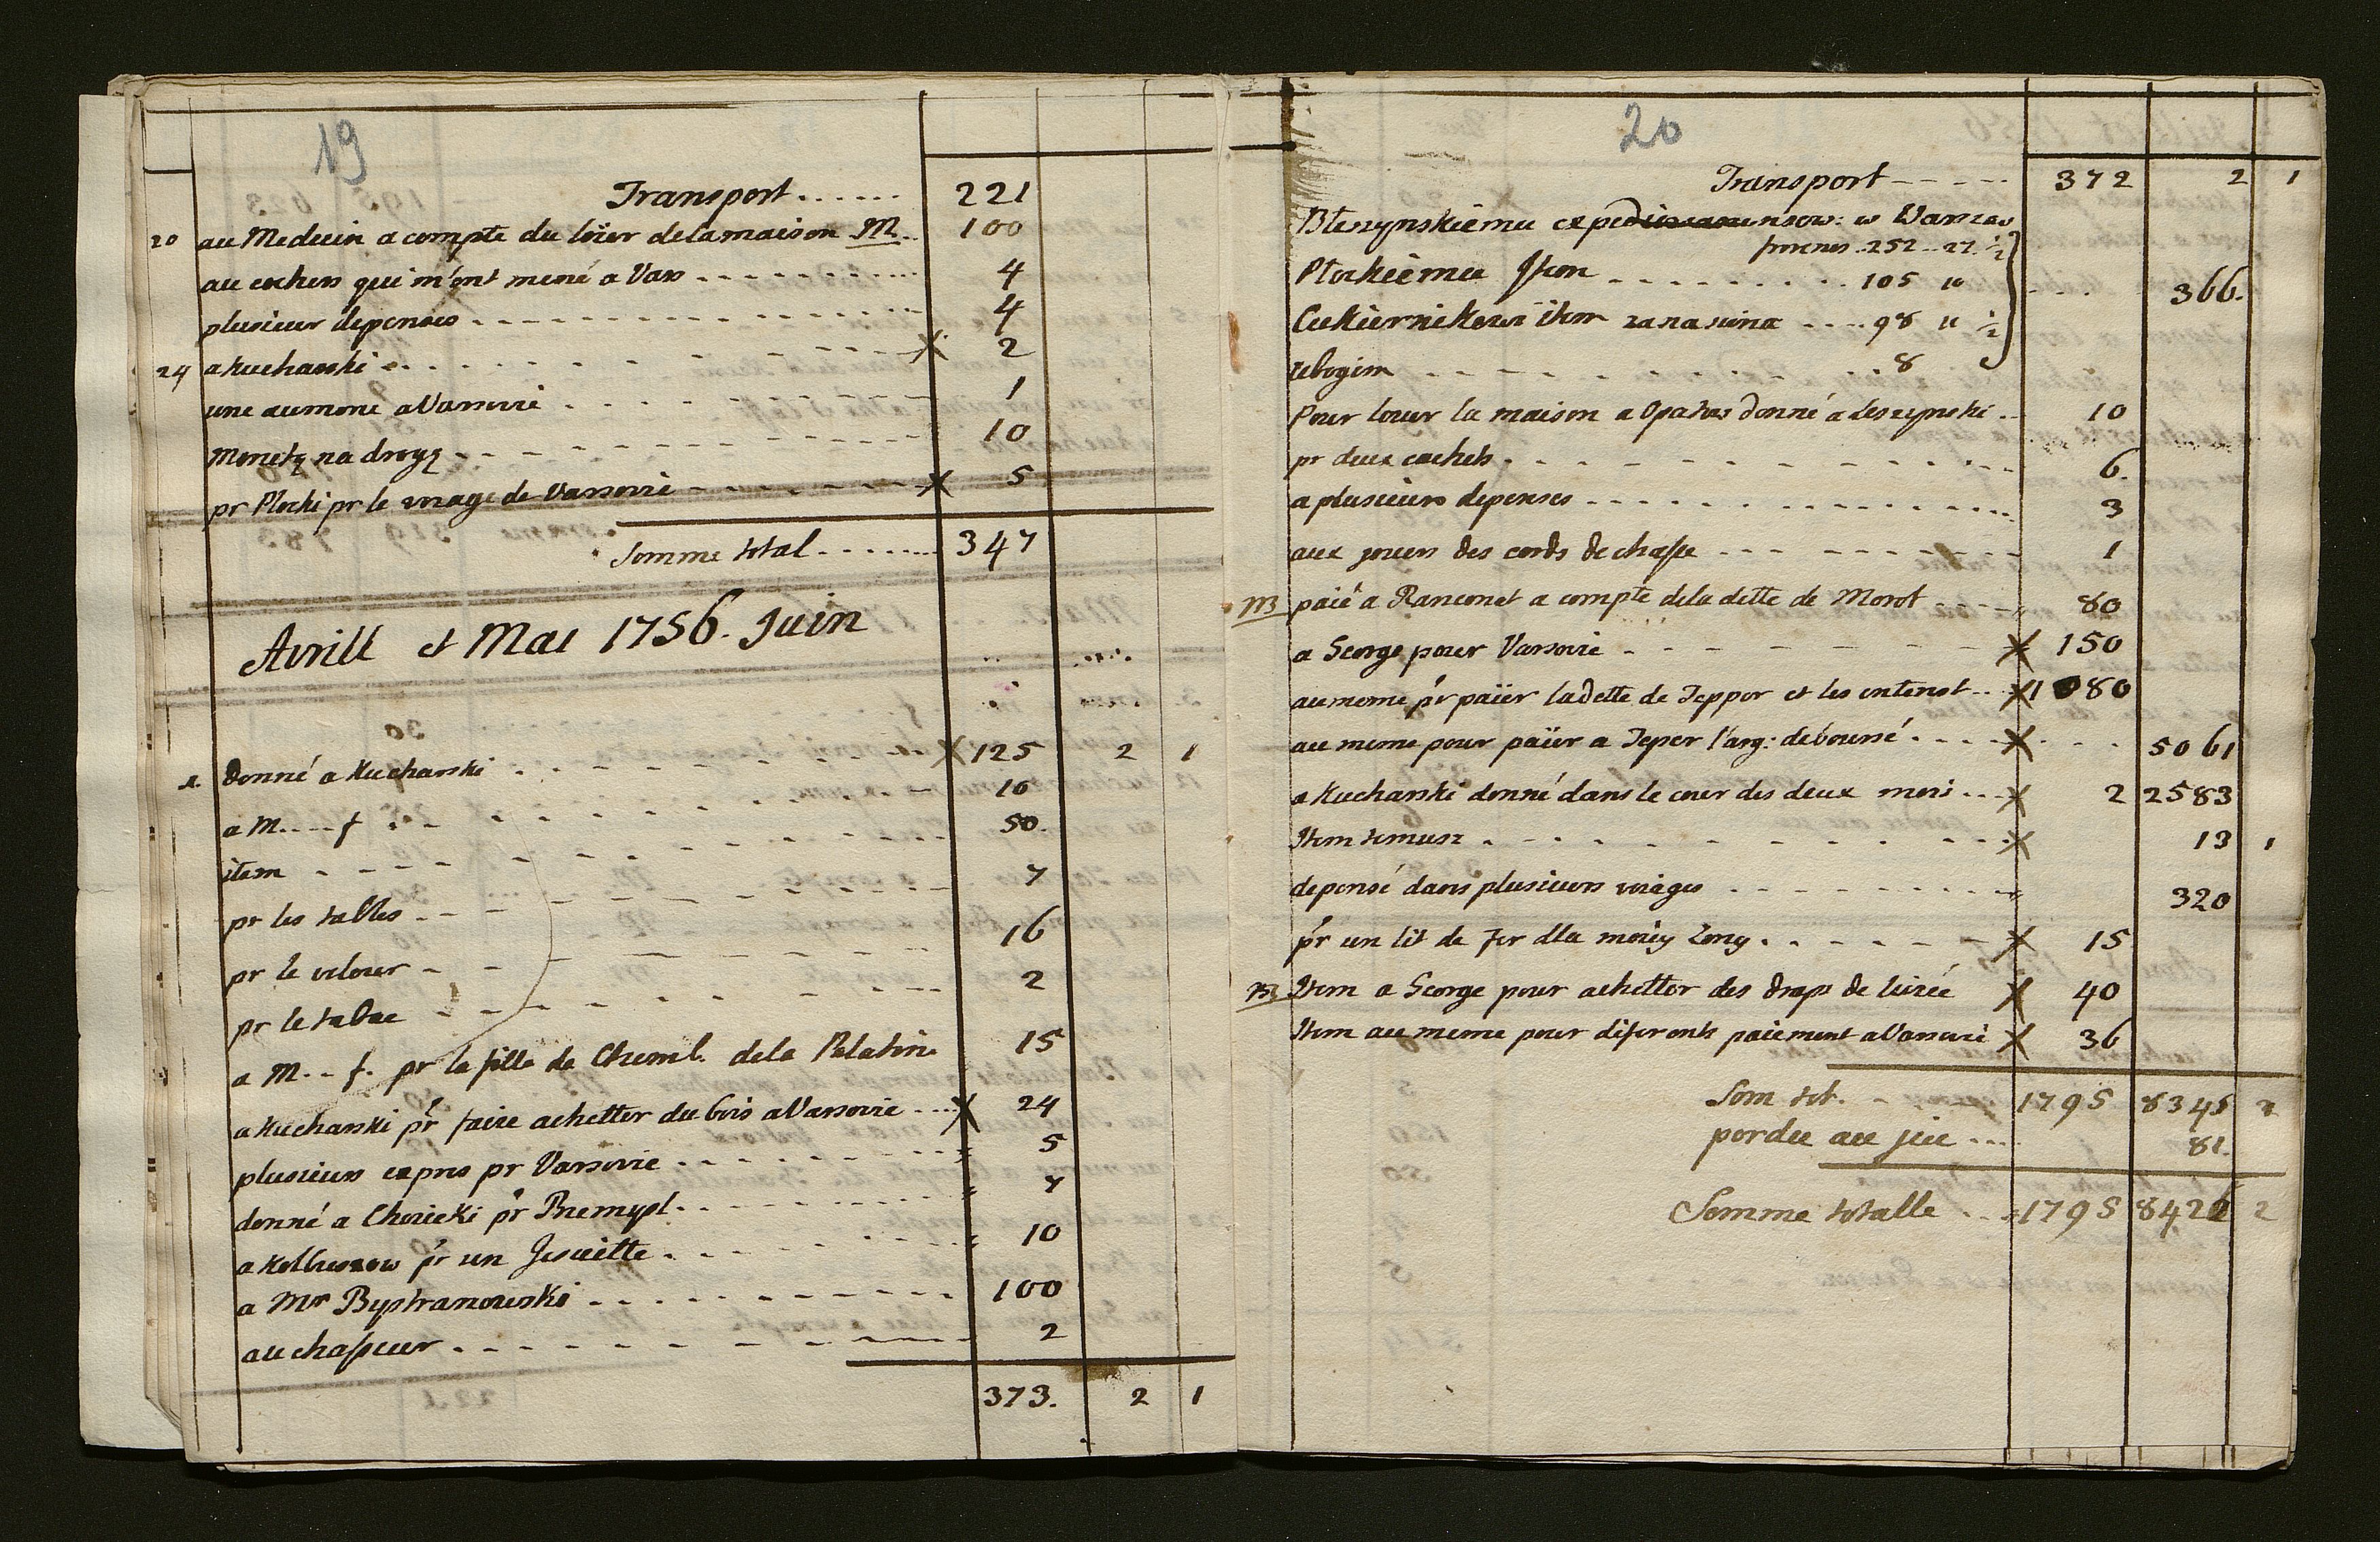 19
Transport ...... 221
20 au Medecin a compte du loïer de la maison M. 100
au cochers qui m'ont mené a Vars - - - 4
plusieur depenses - - - 4
24 a Kucharski - - - X 2
une aumone a Varsovie - - - 1
Monetą na drogą - - - 10
pr Plocki pr le voiage de Varsovie - - - X 5
Somme total ....... 347
Avrill et Mai 1756. Juin
1. donné a Kucharski - - - X 125 2 1
a M....f - - - 10
item - - - 50.
pr les tables - - - 7
pr le velour - - - 16
pr le tabac - - - 2
a M. - f. pr la fille de Cheml. de la Palatine 15
a Kucharski pr faire achetter du bois a Varsovie .... X 24
plusieurs expres pr Varsovie - - - 5
donné a Choiecki pr Premysl - - - 7
a Kolbuszow pr un Jesuitte - - - 10
a Mr Bystranowski - - - 100
au chasseur - - - 2
373. 2 1
20
Transport - - - - 372 2 1
w Warszaw
252 .. 27. ½
Plockiemu Item - - - 105 10
Cukiernikowi item - - - 98 11 ½ ... 366.
ubogim - - - 8
Pour louer la maison a Opatow donné a Leszczynski .. 10
pr deux cachets - - - 6.
a plusieurs depenses - - - 3
aux joueu des cords de chasse - - - 1
M paié a Ranconet a compte de la dette de Morot - - - 80
a George pour Varsovie - - - X 150
au meme pr païer la dette de Tepper et les interest .. X 1080
au meme pour païer a Teper l'arg: debourré - - - X 5061
a Kucharski donné dans le cour des deux mois .. X 2 2583
Item temusz - - - X 13 1
depensé dans plusieurs voiages - - - 320
pr un lit de fer dla moiey Zony - - - X 15
M Item a George pour achetter des draps de livrée X 40
Item au meme pour diferents paiement a Varsovie X 36
Som tot. - - - 1795 8345 2
perdu au jeu ... 81.
Somme totalle ... 1795 8426 2